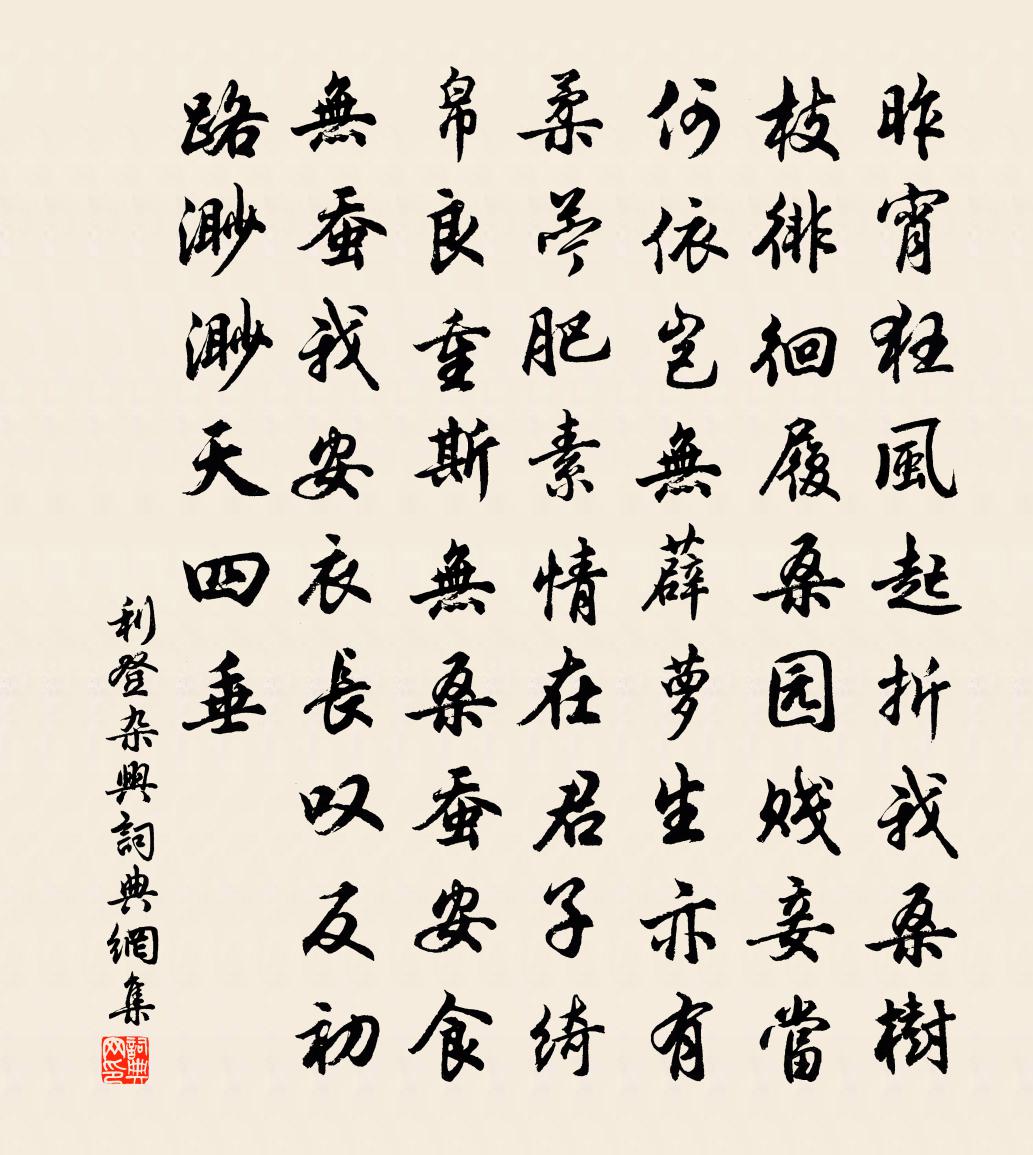 昨宵狂風起折我桑樹
枝徘徊履桑园贱妾當
何依岂無薜萝生亦有
柔苓肥素情在君子綺
帛良重斯無桑蚕安食
無蚕我安衣長叹反初
路渺渺天四垂
利登杂興詞典網集
詞典网印